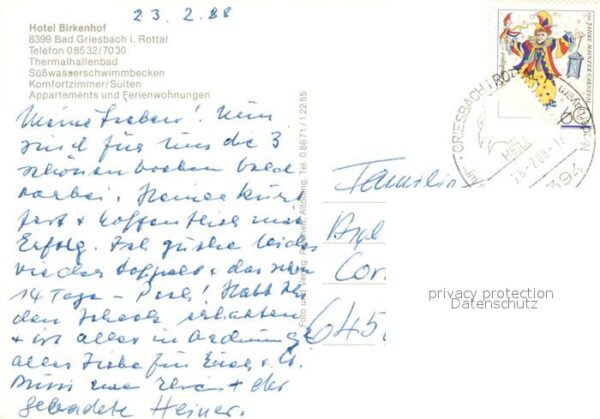 23.2.88
Hotel Birkenhof
8399 Bad Griesbach i. Rottal
Telefon 08532/7030
Thermalhallenbad
Süßwasserschwimmbecken
Komfortzimmer/Suiten
Appartements und Ferienwohnungen
Meine Lieben! Nun
sind für uns die 3
schönen Wochen bald
vorbei. Heiner
+ hoffentlich mit
Erfolg. Ich leider
wieder doppelt + das schon
14 Tage - Pech! Habt Ihr
den Scheck erhalten
+ ist alles in Ordnung?
alles Liebe für Euch
+ der
gebadete Heiner.
Foto und Verlag: Altötting, Tel. 08671/12255
Familie
645
150 JAHRE MAINZER CARNEVAL
GRIESBACH I ROTTAL
8394
privacy protection
Datenschutz